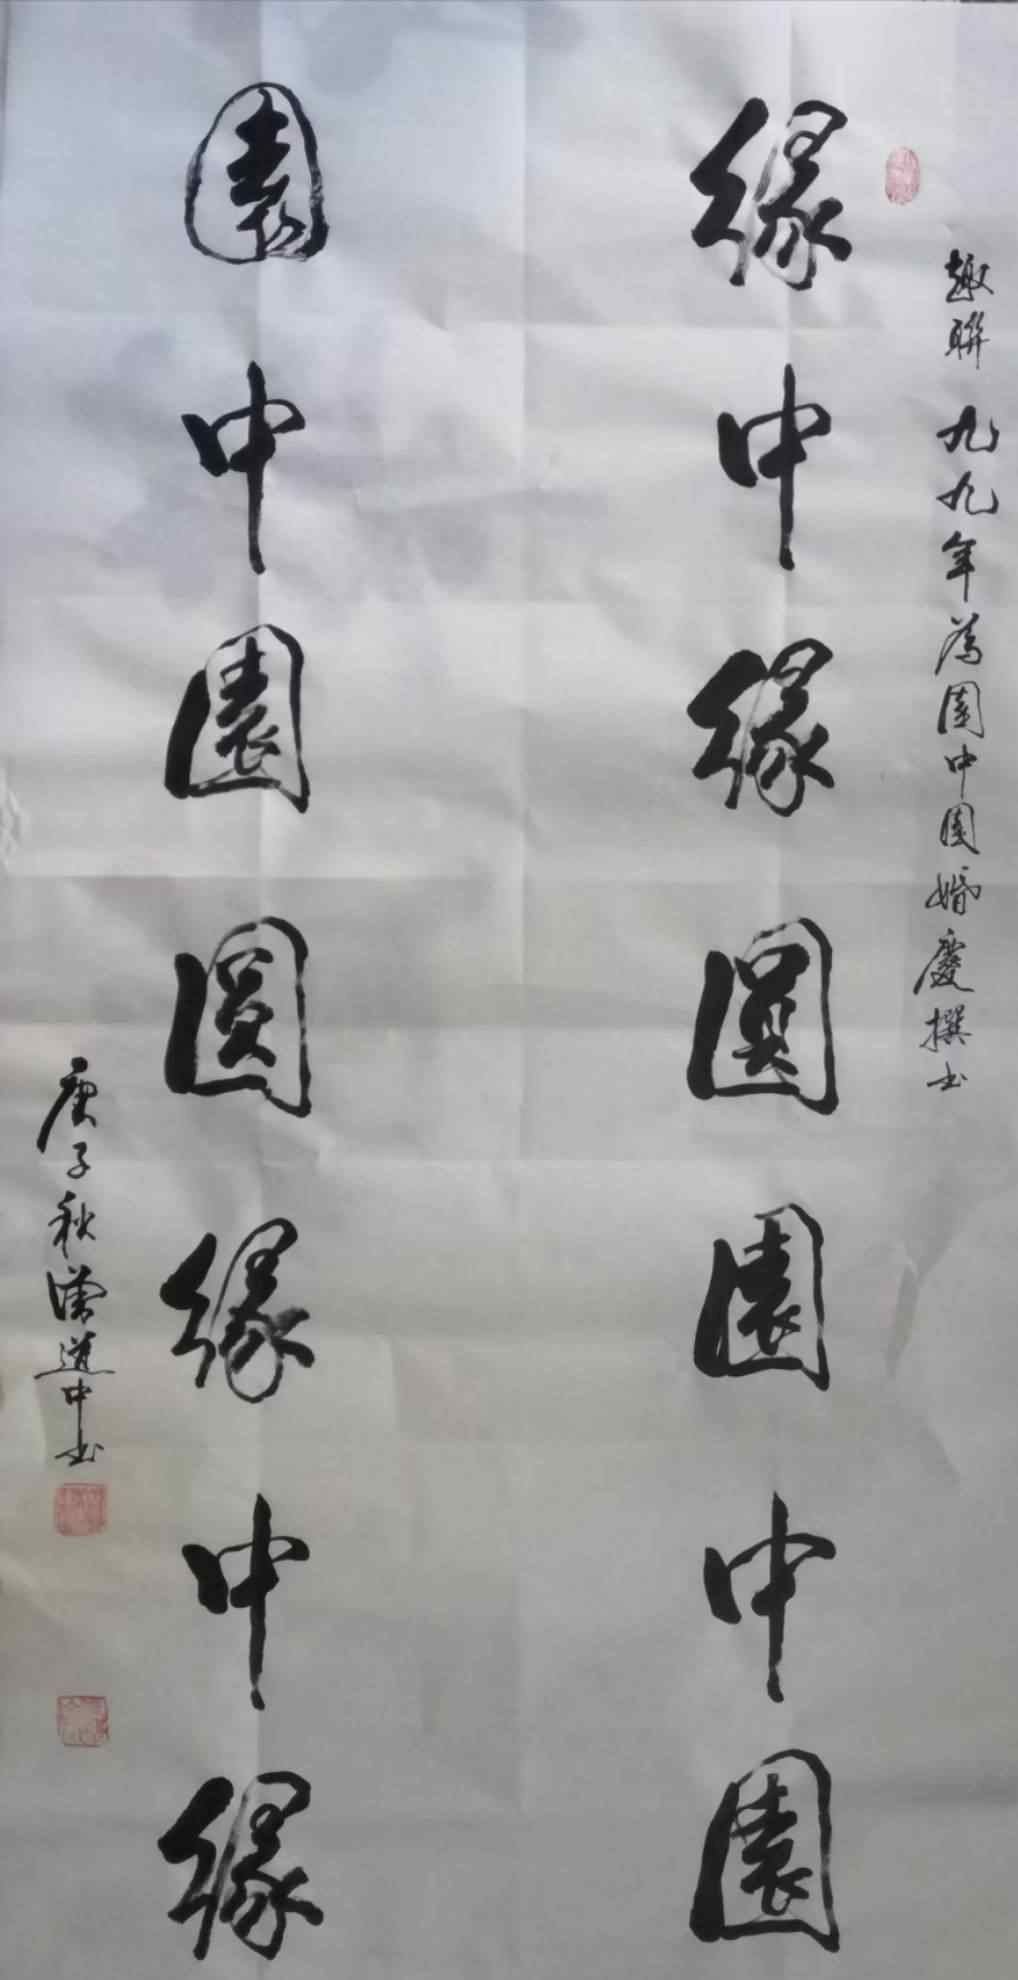 趣聯 九九年為園中園婚慶撰書
緣中緣圓園中園
園中園圓緣中緣
庚子秋漢道中書